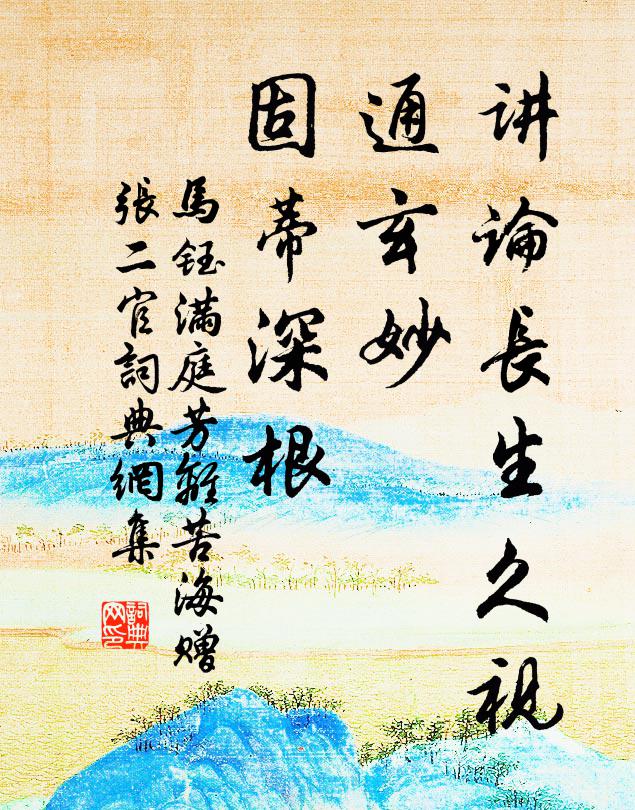 讲論長生久視
通玄妙
固蒂深根
馬鈺滿庭芳離苦海贈
張二官詞典網集
詞典
网印